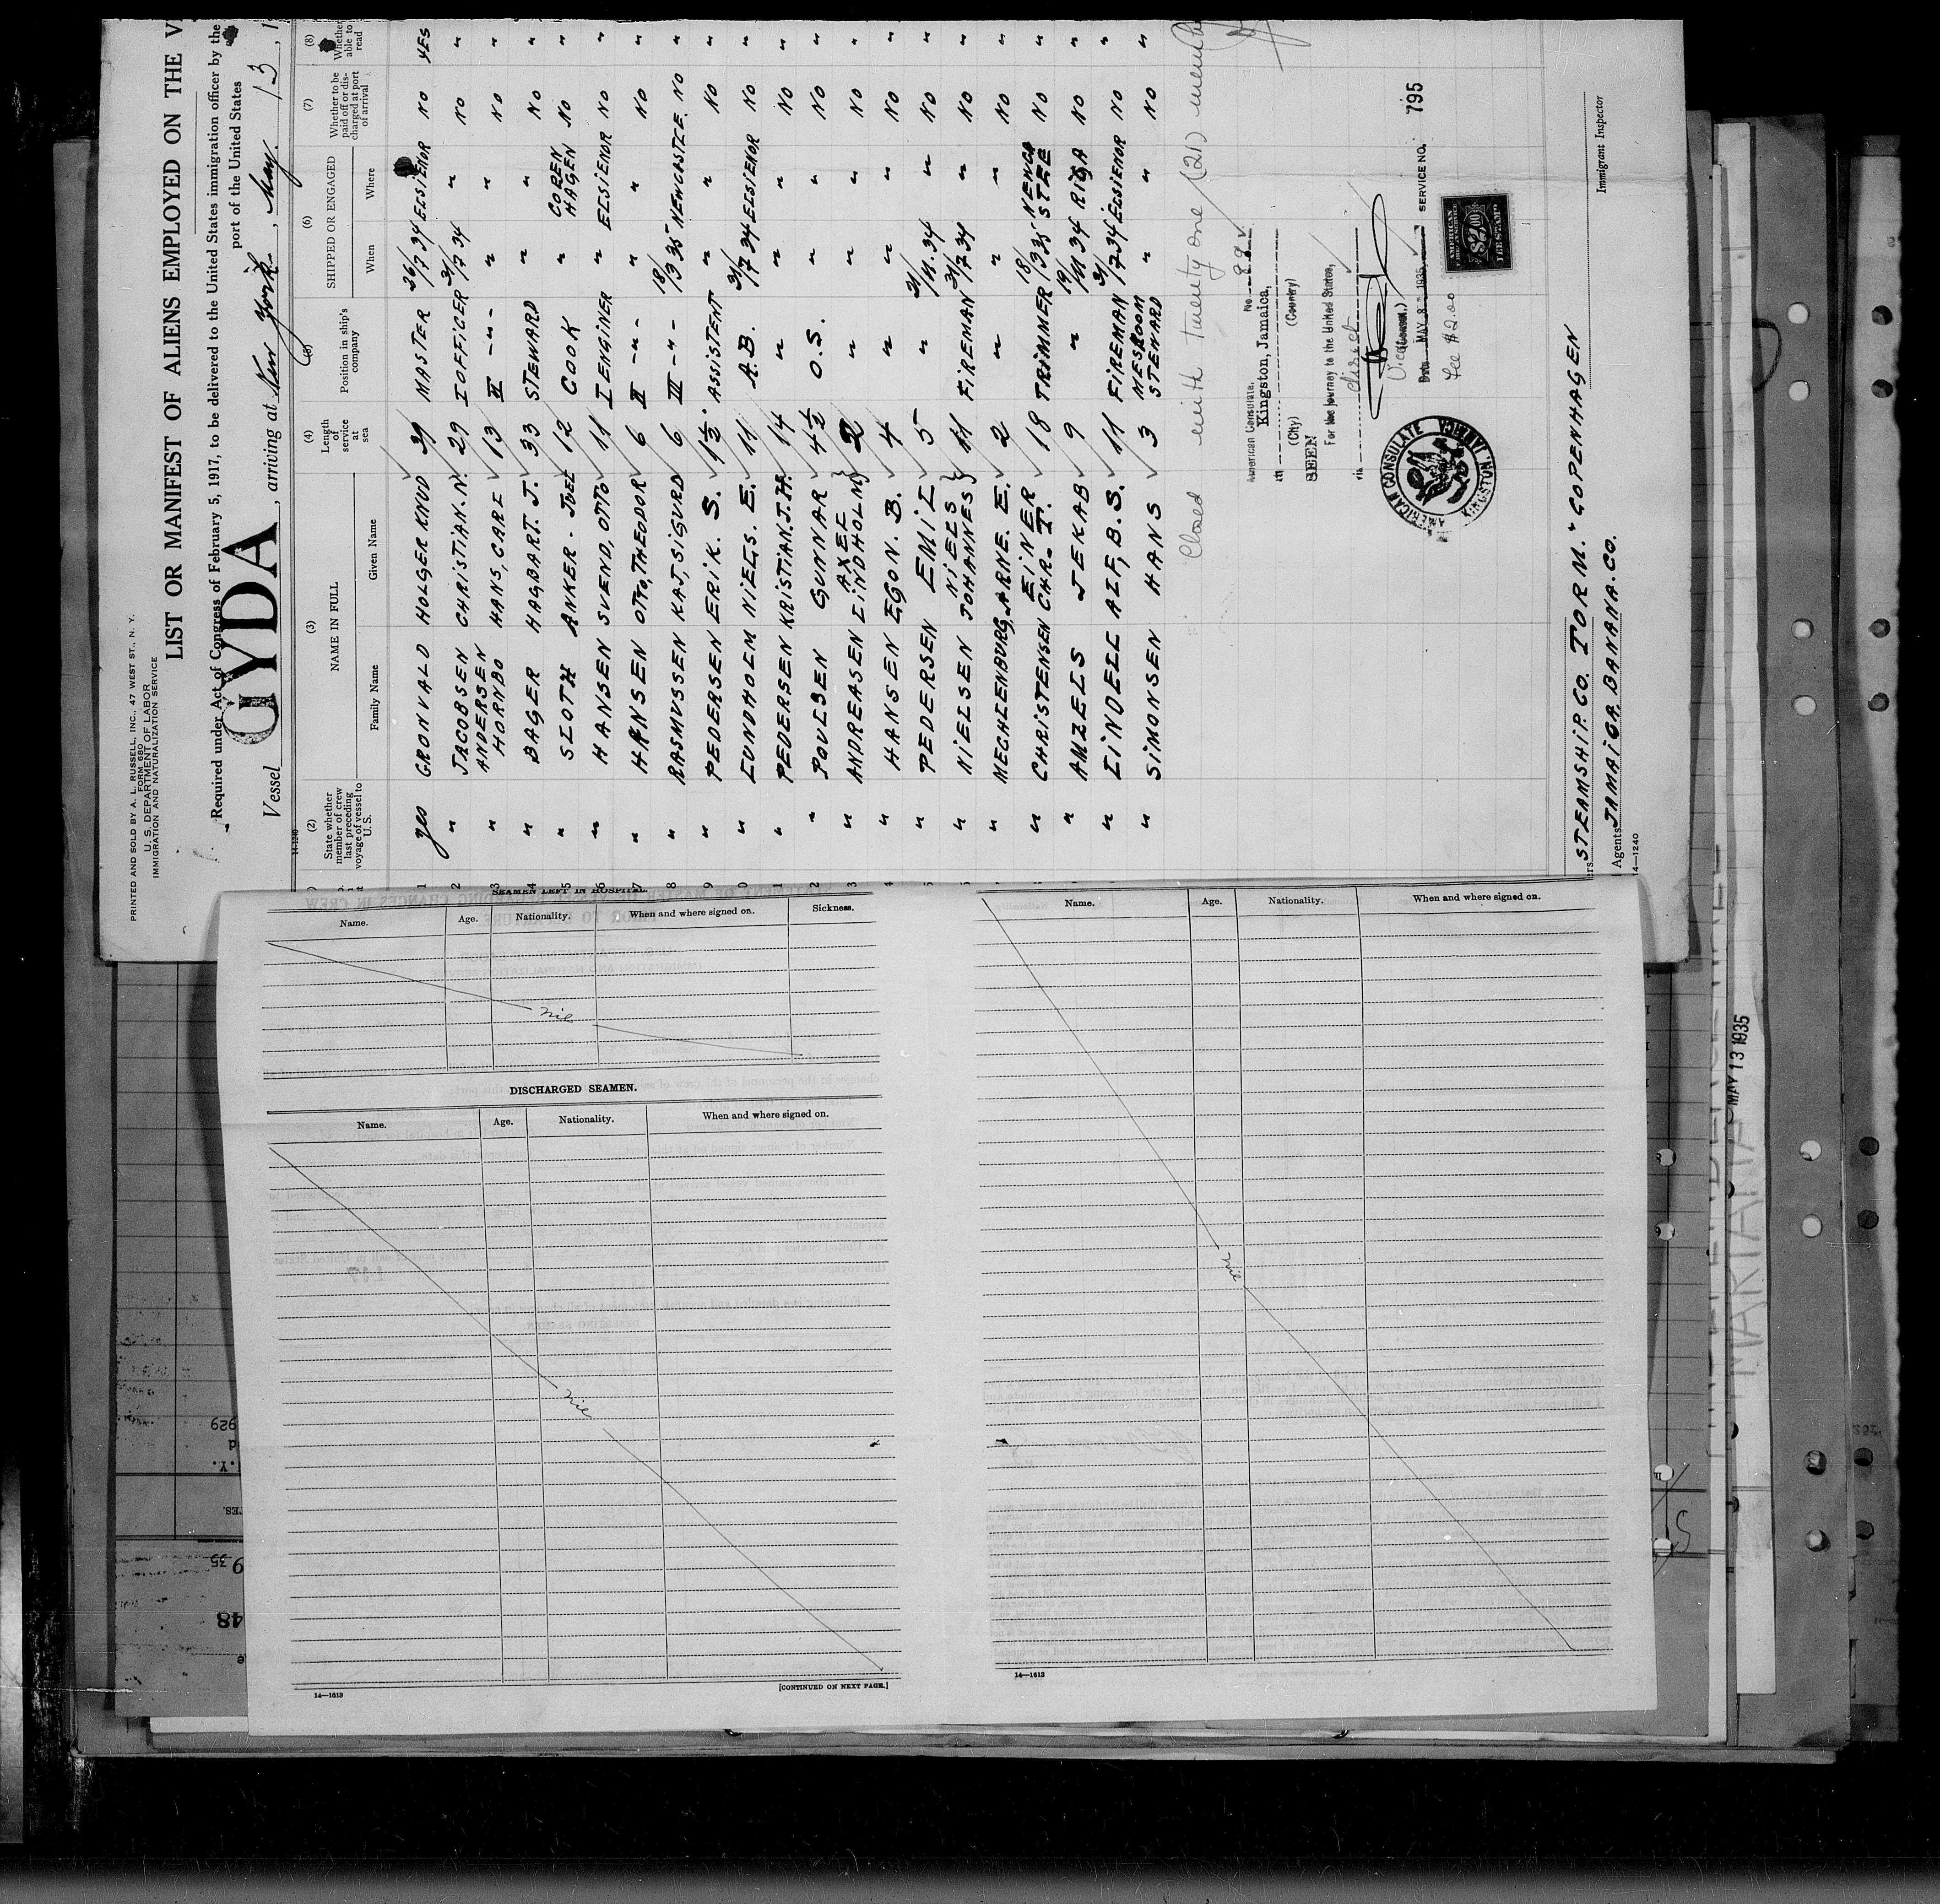 PRINTED AND SOLD BY A. L. RUSSELL, INC., 47 WEST ST., N. Y.
FORM 680
U. S. DEPARTMENT OF LABOR
IMMIGRATION AND NATURALIZATION SERVICE
LIST OR MANIFEST OF ALIENS EMPLOYED ON THE V
Required under Act of Congress of February 5, 1917, to be delivered to the United States immigration officer by the
port of the United States
Vessel GYDA, arriving at New York, May. 13, 1
14-1240
(2) (3) (4) (5) (6) (7) (8)
State whether member of crew last preceding voyage of vessel to U.S.
NAME IN FULL
Family Name Given Name
Length of service at sea
Position in ship's company
SHIPPED OR ENGAGED
When Where
Whether to be paid off or discharged at port of arrival
Whether able to read
1 yes GRONVALD HOLGER KNUD 31 MASTER 26/7 34 ELSIENOR NO YES
2 " JACOBSEN CHRISTIAN. N. 29 I OFFICER 31/7 34 " NO "
3 " ANDERSEN HORNBO HANS, CARL 13 II -"- " " NO "
4 " BAGER HAGBART. J. 33 STEWARD " " NO "
5 " SLOTH ANKER - JUEL 12 COOK " COPENHAGEN NO "
6 " HANSEN SVEND, OTTO 11 I ENGINER " ELSIENOR NO "
7 " HANSEN OTTO, THEODOR 6 II -"- " " NO "
8 " RASMUSSEN KAJ, SIGURD 6 III -"- 18/3 35 NEWCASTLE. NO "
9 " PEDERSEN ERIK. S. 1½ ASSISTENT " " NO "
0 " LUNDHOLM NIELS. E. 11 A.B. 31/7 34 ELSIENOR NO "
1 " PEDERSEN KRISTIAN. J. H. 14 " " " NO "
2 " POULSEN GUNNAR 4½ O.S. " " NO "
3 " ANDREASEN AXEL LINDHOLM 2 " " " NO "
4 " HANSEN EGON. B. 4 " " " NO "
5 " PEDERSEN EMIL 5 " 21/11. 34 " NO "
6 " NIELSEN NIELS JOHANNES 11 FIREMAN 31/7 34 " NO "
" MECHLENBURG, ARNE. E. 2 " " " NO "
" CHRISTENSEN EINER CHR. T. 18 TRIMMER 18/3 35 NEWCASTLE NO "
" AMZELS JEKAB 9 " 19/11 34 RIGA NO "
" LINDELL ALF, B. S. 11 FIREMAN 31/7 34 ELSIENOR NO "
" SIMONSEN HANS 3 MESROOM STEWARD " " NO "
Closed with twenty one (21) memb
American Consulate, No. 89
at Kingston, Jamaica,
(City) (Country)
SEEN
For the journey to the United States,
via direct
Vice Consul.
Date MAY 8 1935. SERVICE NO. 795
Fee $2.00
AMERICAN CONSULATE KINGSTON, JAMAICA
AMERICAN
$2.00
FEE STAMP
STEAMSHIP. CO. TORM. COPENHAGEN
Agents JAMAICA. BANANA. CO.
Immigrant Inspector
14—1240
MAY 13 1935
MARIANA
SEAMEN LEFT IN HOSPITAL.
Name. Age. Nationality. When and where signed on. Sickness.
nil
DISCHARGED SEAMEN.
Name. Age. Nationality. When and where signed on.
nil
14—1613
[CONTINUED ON NEXT PAGE.]
Name. Age. Nationality. When and where signed on.
nil
14—1613